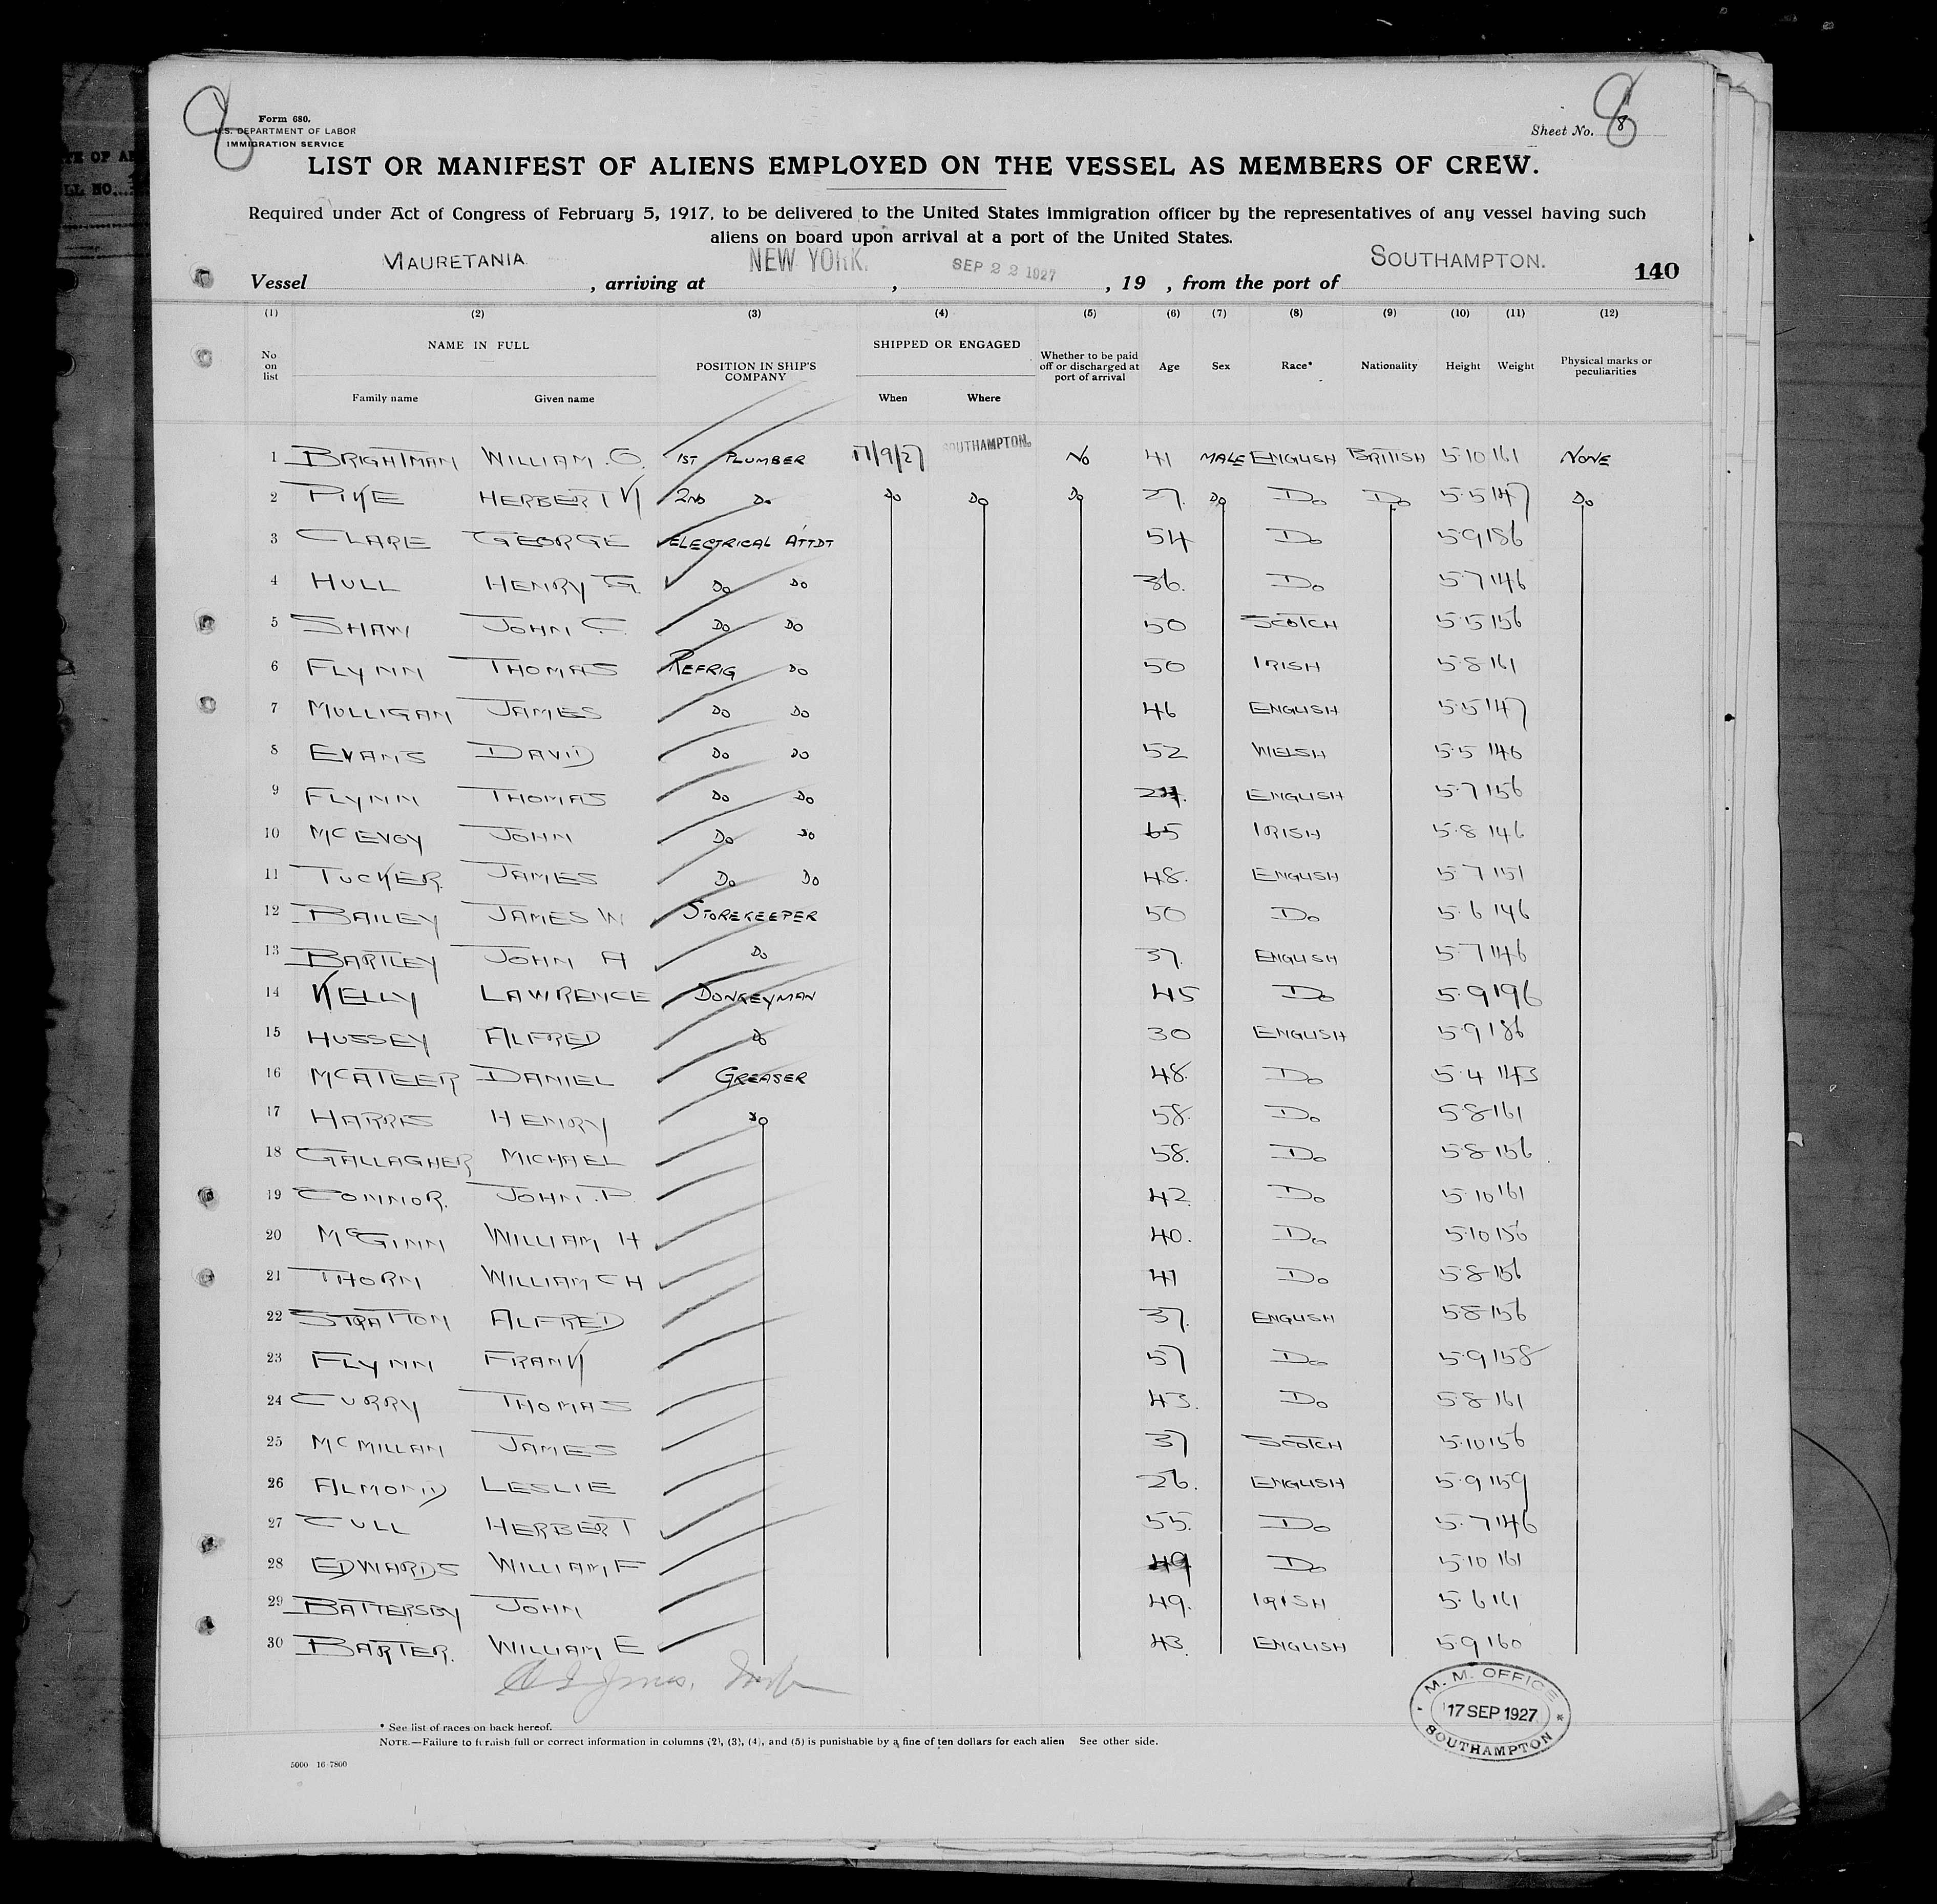 8
Form 680.
U.S. DEPARTMENT OF LABOR
IMMIGRATION SERVICE
Sheet No. 8
8
LIST OR MANIFEST OF ALIENS EMPLOYED ON THE VESSEL AS MEMBERS OF CREW.
Required under Act of Congress of February 5, 1917, to be delivered to the United States Immigration officer by the representatives of any vessel having such
aliens on board upon arrival at a port of the United States.
Vessel MAURETANIA, arriving at NEW YORK., SEP 22 1927, 19 , from the port of SOUTHAMPTON. 140
(1) (2) (3) (4) (5) (6) (7) (8) (9) (10) (11) (12)
No on list NAME IN FULL POSITION IN SHIP'S COMPANY SHIPPED OR ENGAGED Whether to be paid off or discharged at port of arrival Age Sex Race* Nationality Height Weight Physical marks or peculiarities
Family name Given name When Where
1 BRIGHTMAN WILLIAM.O. 1ST PLUMBER 17/9/27 SOUTHAMPTON. NO 41 MALE ENGLISH BRITISH 5.10 161 NONE
2 PIKE HERBERT K 2ND DO DO DO DO 27. DO DO DO 5.5 147 DO
3 CLARE GEORGE ELECTRICAL ATTDT 54 DO 5.9 186
4 HULL HENRY G. DO DO 36. DO 5.7 146
5 SHAW JOHN C. DO DO 50 SCOTCH 5.5 156
6 FLYNN THOMAS REFRIG DO 50 IRISH 5.8 161
7 MULLIGAN JAMES DO DO 46 ENGLISH 5.5 147
8 EVANS DAVID DO DO 52 WELSH 5.5 146
9 FLYNN THOMAS DO DO ENGLISH 5.7 156
10 MCEVOY JOHN DO DO 65 IRISH 5.8 146
11 TUCKER. JAMES DO DO 48. ENGLISH 5.7 151
12 BAILEY JAMES W STOREKEEPER 50 DO 5.6 146
13 BARTLEY JOHN A DO 37. ENGLISH 5.7 146
14 KELLY LAWRENCE DONKEYMAN 45 DO 5.9 196
15 HUSSEY ALFRED DO 30 ENGLISH 5.9 186
16 MCATEER DANIEL GREASER 48. DO 5.4 143
17 HARRIS HENRY DO 58. DO 5.8 161
18 GALLAGHER MICHAEL 58. DO 5.8 156
19 CONNOR. JOHN.P. 42 DO 5.10 161
20 MCGINN WILLIAM H 40. DO 5.10 156
21 THORN WILLIAM C H 41 DO 5.8 156
22 STRATTON ALFRED 37. ENGLISH 5.8 156
23 FLYNN FRANK 57 DO 5.9 158
24 CURRY THOMAS 43. DO 5.8 161
25 MCMILLAN JAMES 37 SCOTCH 5.10 156
26 ALMOND LESLIE 26. ENGLISH 5.9 159
27 CULL HERBERT 55. DO 5.7 146
28 EDWARDS WILLIAM F 49 DO 5.10 161
29 BATTERSBY JOHN 49. IRISH 5.6 161
30 BARTER. WILLIAM E 43 ENGLISH 5.9 160
M. M. OFFICE
17 SEP 1927
SOUTHAMPTON
* See list of races on back hereof.
NOTE.—Failure to furnish full or correct information in columns (2), (3), (4), and (5) is punishable by a fine of ten dollars for each alien See other side.
5000 16-7800